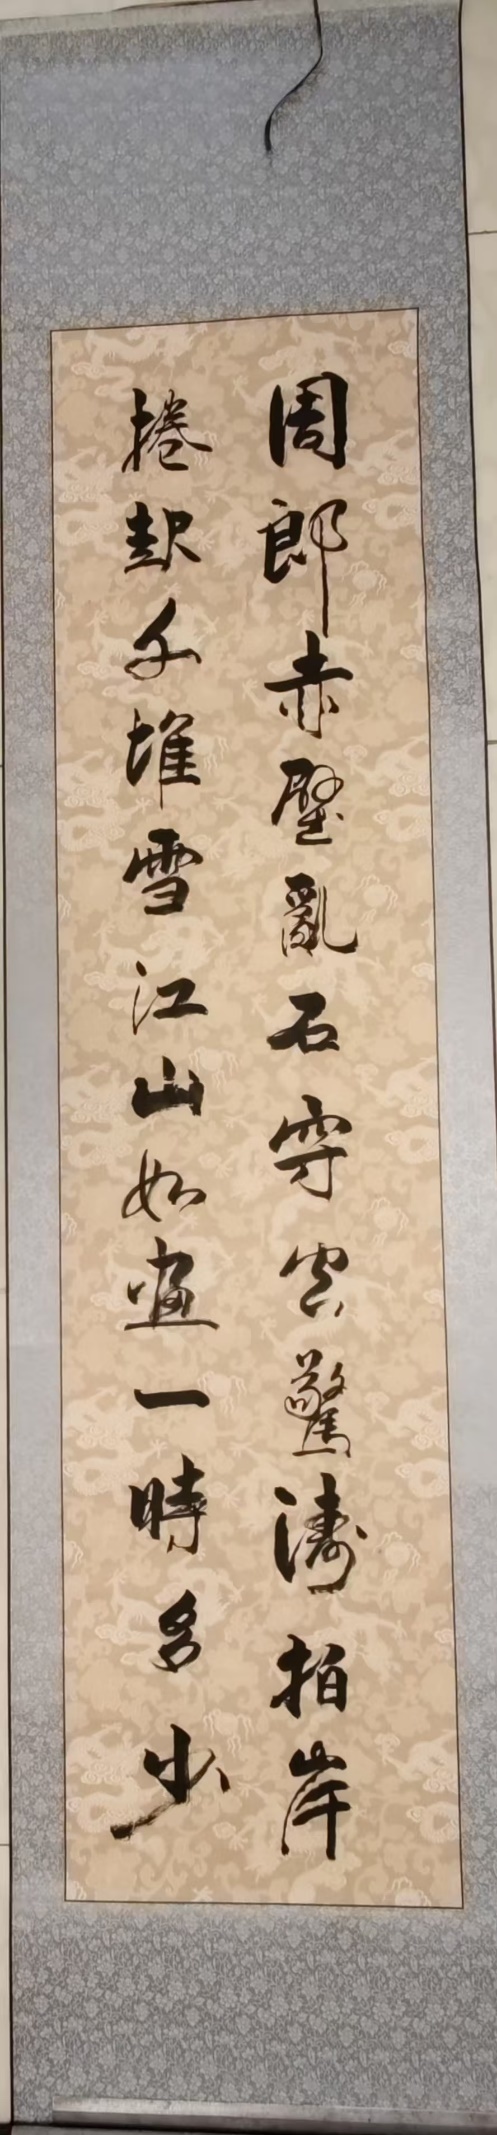 周郎赤壁亂石穿空驚濤拍岸
捲起千堆雪江山如畫一時多少